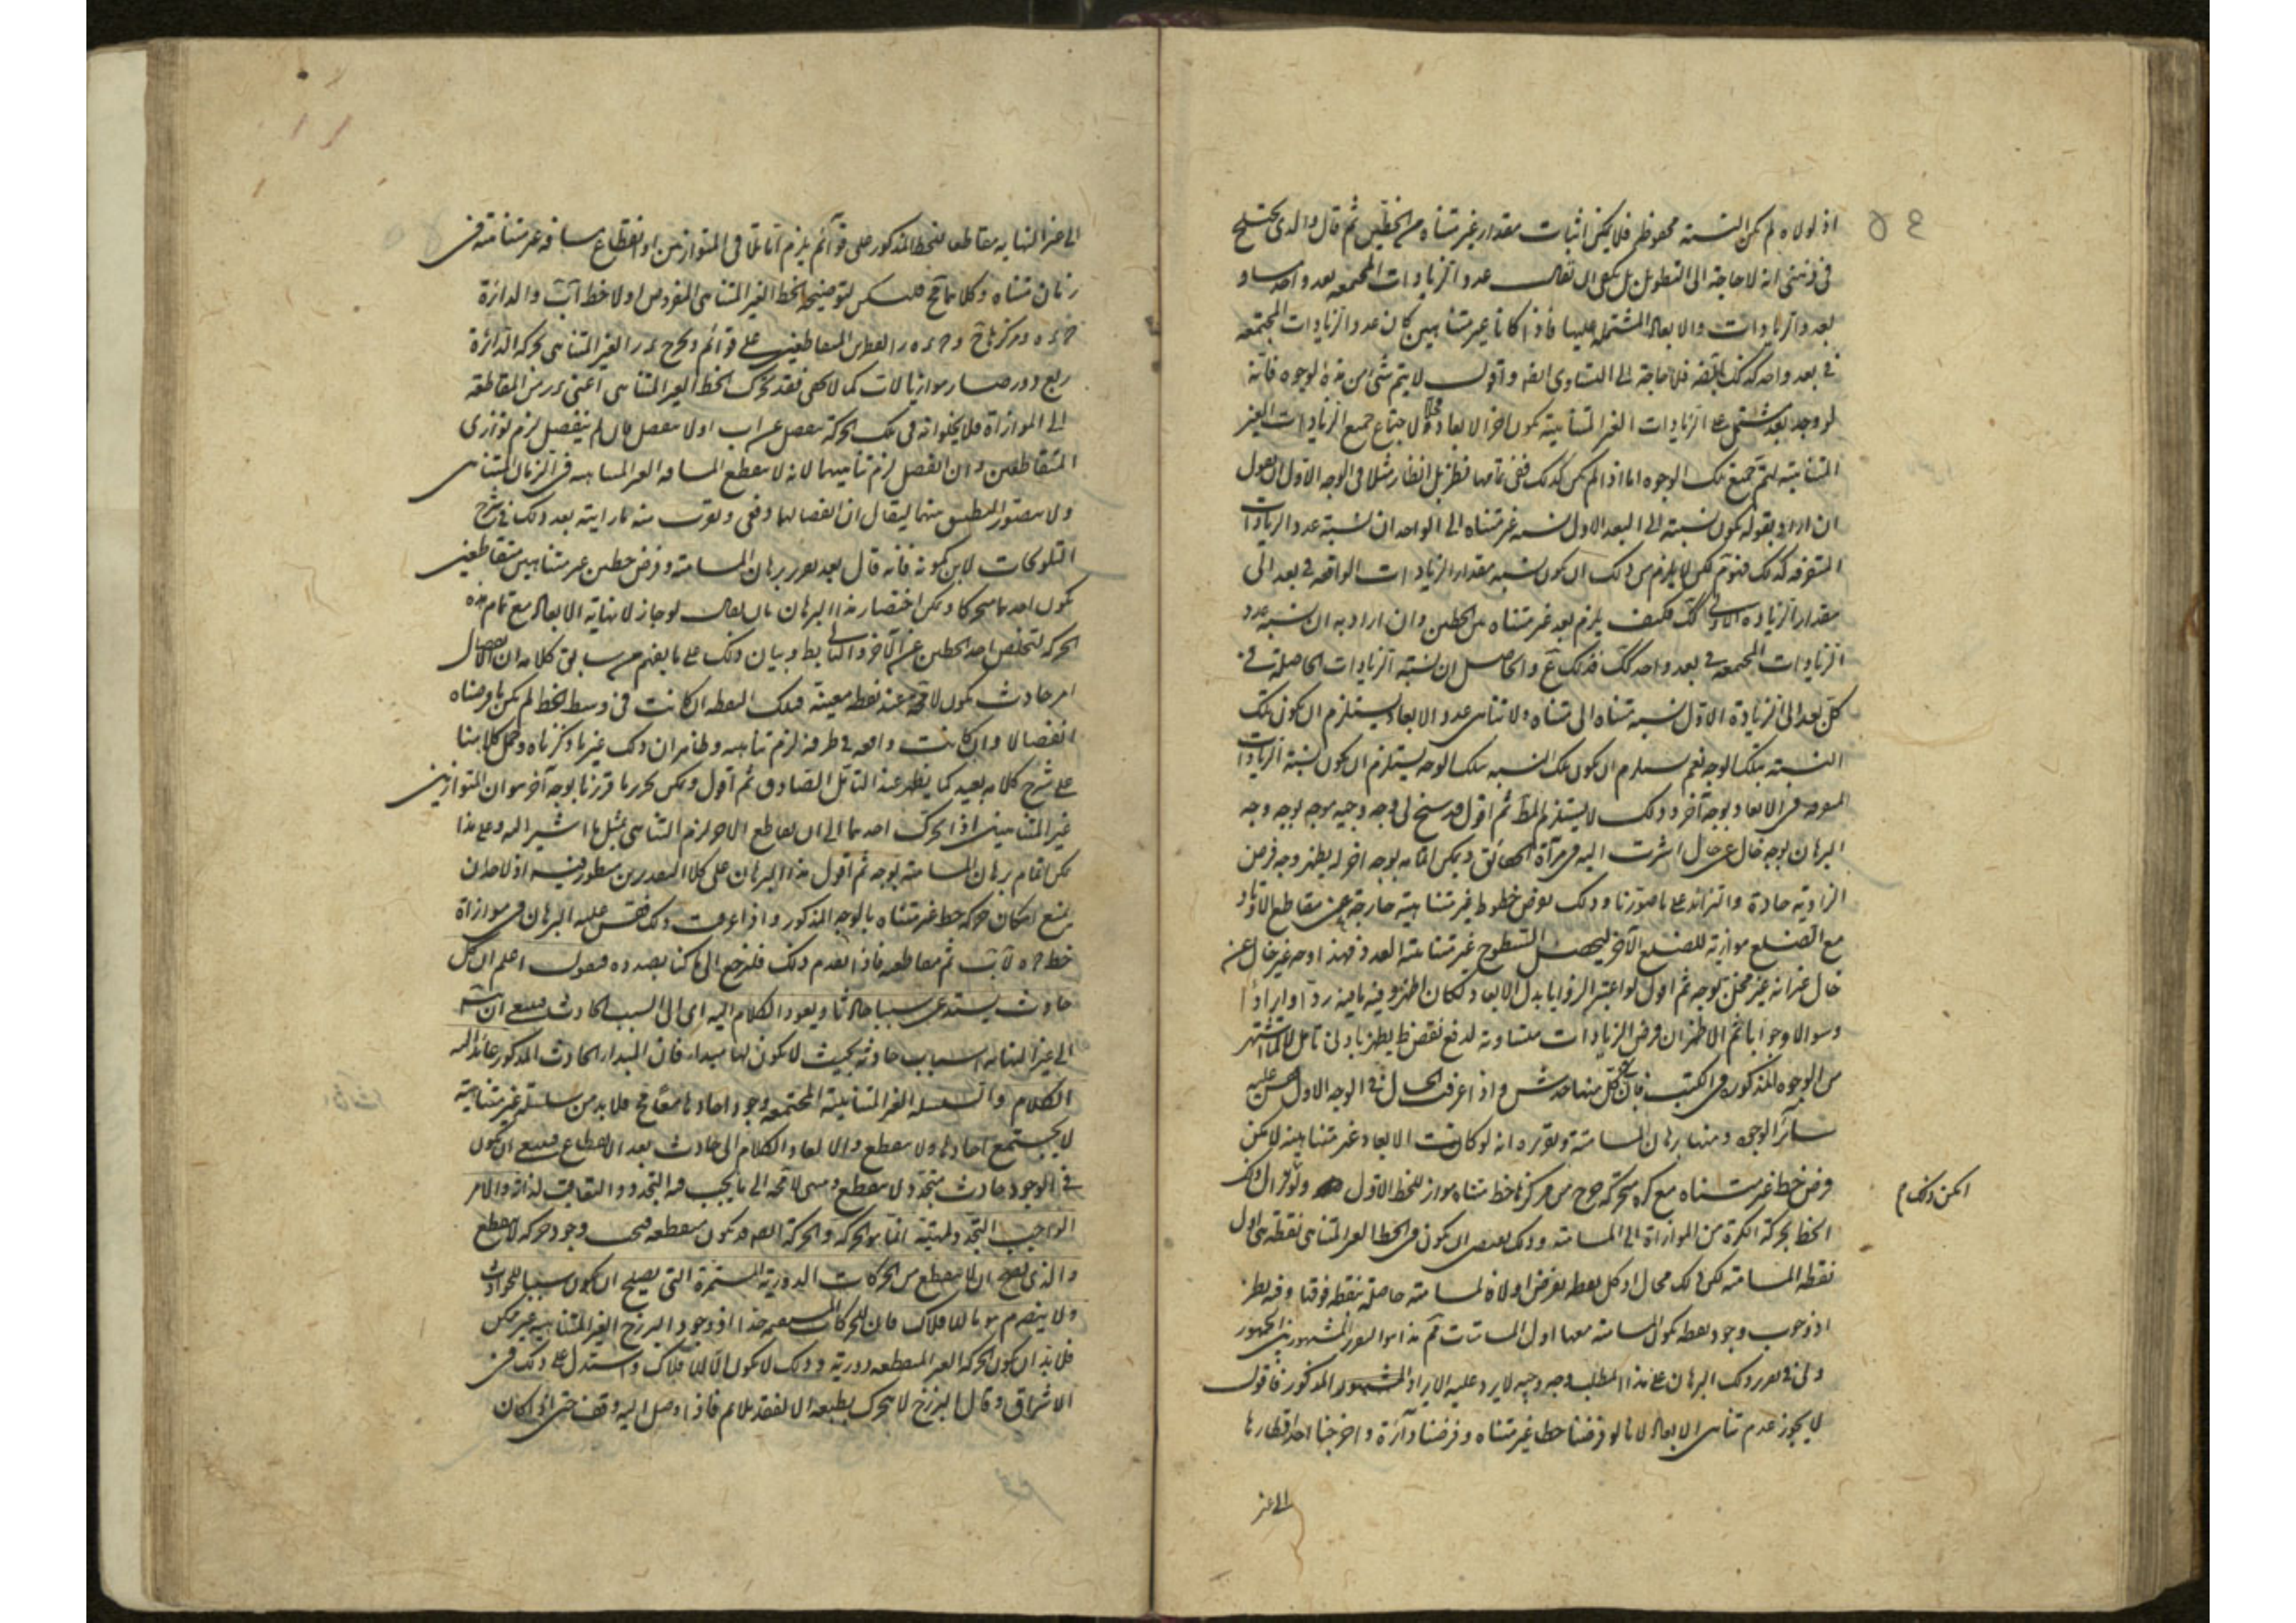 اذ لولاه لم يكن النسبة محفوظة فلا يمكن اثبات مقدار غير متناه من الخطين ثم قال والذى يختلج
فى ذهنى انه لا حاجة الى التطويل بل يكفى ان يقال عدد الزيادات المجتمعة بعد واحد مساو
لعدد الزيادات والابعاد المشتملة عليها فاذا كانا غير متناهيين كان عدد الزيادات المجتمعة
فى بعد واحد كذلك فلا حاجة الى التساوى ايضا واقول لا يتم شئ من هذه الوجوه فانه
لو وجد بعد مشتمل على الزيادات الغير المتناهية يكون آخر الابعاد لاجتماع جميع الزيادات الغير
المتناهية ليتم جميع تلك الوجوه اما اذا لم يكن كذلك ففى تمامها نظر بل انظار مثلا فى الوجه الاول ان نقول
ان اراد بقوله يكون نسبته الى البعد الاول نسبة غير متناه الى الواحد ان نسبة عدد الزيادات
المتفرقة كذلك فمم لكن لا يلزم من ذلك ان يكون نسبة مقدار الزيادات الواقعة فى بعد الى
مقدار الزيادة الاولى كك فكيف يلزم بعد غير متناه بين الخطين وان اراد به ان نسبة عدد
الزيادات المجتمعة فى بعد واحد كك فذلك مم والحاصل ان نسبة الزيادات الحاصلة فى
كل بعد الى الزيادة الاول نسبة متناه الى متناه ولا تناهى عدد الابعاد يستلزم ان يكون تلك
النسبة بتلك الوجه نعم يستلزم ان يكون تلك النسبة بتلك الوجه يستلزم ان يكون نسبة الزيادات
فى الابعاد بوجه آخر وذلك لا يستلزم المط ثم اقول قد سنح لى وجه وجيه موجه يوجه وجه
البرهان بوجه خال عن خال اشرت اليه فى مرآة الحقائق ويمكن اتمامه بوجه آخر له يظهر وجه فرض
الزاوية حادة والتزايد على ما صورنا وذلك بفرض خطوط غير متناهية خارجة عن مقاطع الاوتار
مع الضلع موازية للضلع الآخر ليحصل السطوح غير متناهية العدد فهذا وجه غير خال عن
خال غير انه غير مخل بوجه ثم اقول لو اعتبر الزوايا بدل الابعاد لكان اظهر وفيه ما فيه ردا وايرادا
وسوالا وجوابا ثم الاظهر ان فرض الزيادات متساوية لدفع نقض يظهر بادنى تأمل
من الوجوه المذكورة فى الكتب فان فى كل منها خدش واذا عرفت الحال فى الوجه الاول فقس عليه
سائر الوجوه ومنها برهان المسامتة وتقريره انه لو كانت الابعاد غير متناهية لامكن
فرض خط غير متناه مع كرة متحركة خرج من مركزها خط متناه مواز للخط الاول ولو تحرك ذلك
امكن ذلك م
الخط بحركة الكرة من الموازاة الى المسامتة وذلك يقتضى ان يكون فى الخط الغير المتناهى نقطة هى اول
نقطة المسامتة لكن ذلك محال اذ كل نقطة يفرض اولا فالمسامتة حاصلة بنقطة فوقها وفيه نظر
اذ وجوب وجود نقطة يكون المسامتة معها اول المسامتات مم هذا هو التقرير المشهور بين الجمهور
ولى فى تقرير ذلك البرهان على هذا المطلب وجه وجيه لا يرد عليه الايراد المشهور المذكور فاقول
لا يجوز عدم تناهى الابعاد لانا لو فرضنا خطا غير متناه وفرضنا دائرة واخرجنا احد اقطارها
الى غير
الى غير النهاية مقاطعا للخط المذكور على قوائم يلزم اما تلاقى المتوازيين او انقطاع مسافة غير متناهية فى
زمان متناه وكلاهما مح وليكن لتوضيحه الخط الغير المتناهى المفروض اولا خط اب والدائرة
على قوائم ويخرج الغير المتناهى بحركة الدائرة
ربع دور صار موازيا لاب كما لا يخفى فقد تحرك الخط الغير المتناهى اعنى من المقاطعة
الى الموازاة فلا يخلو انه فى تلك الحركة ينفصل عن اب او لا ينفصل فان لم ينفصل لزم توازى
المتقاطعين وان انفصل لزم تناهيهما لانه لا ينقطع المسافة الغير المتناهية فى الزمان المتناهى
ولا يتصور التطبيق منهما ليقال ان انفصالهما دفعى ويقرب منه ما رايته بعد ذلك فى شرح
التلويحات لابن كمونة فانه قال بعد تقرير برهان المسامتة وفرض خطين غير متناهيين متقاطعين
يكون احدهما متحركا ويمكن اختصار هذا البرهان بان يقال لو جاز لا نهاية الابعاد مع تمام هذه
الحركة لتخلص احد الخطين عن الآخر والتالى بط وبيان ذلك على ما يفهم من سابق كلامه ان الانفصال
امر حادث يكون لا محة عند نقطة معينة فتلك النقطة ان كانت فى وسط الخط لم يكن ما فرضناه
انفصالا وان كانت واقعة فى طرفه لزم تناهيه وظاهر ان ذلك غير ما ذكرناه وحمل كلامنا
على شرح كلامه بعيد كما يظهر عند التأمل الصادق ثم اقول ويمكن تحرير ما قررنا بوجه آخر هو ان المتوازيين
غير المتناهيين اذا تحرك احدهما الى ان يقاطع الآخر لزم التناهى بمثل ما اشير اليه وعلى هذا
يمكن اتمام برهان المسامتة بوجه ثم اقول هذا البرهان على كلا التقديرين منظور فيه اذ لاحد ان
يمنع امكان حركة خط غير متناه بالوجه المذكور واذا عرفت ذلك فقس عليه البرهان فى موازاة
خط لاب ثم مقاطعة فاذا تقدم ذلك فلنرجع الى ما كنا بصدده فنقول اعلم ان كل
حادث يستدعى سببا حادثا ويعود الكلام اليه اى الى السبب الحادث فينبغى ان
الى غير النهاية اسباب حادثة بحيث لا يكون لها مبدا فان المبدا الحادث المذكور عائد اليه
الكلام والسلسلة الغير المتناهية المجتمعة وجود احادها معا مح فلا بد من سلسلة غير متناهية
لا يجتمع احادها ولا ينقطع والا لعاد الكلام الى حادث بعد الانقطاع فينبغى ان يكون
فى الوجود حادث متجدد لا ينقطع وينتهى لا محة الى ما يجب فيه التجدد والتعاقب لذاته والامر
الواجب التجدد لمهيته انما هو الحركة والحركة المستقيمة يكون منقطعة فيجب وجود حركة لا ينقطع
والذى يصح ان لا ينقطع من الحركات الدورية المستمرة التى يصلح ان يكون سببا للحوادث
ولا ينصرم هو ما للافلاك فان للحركات المستقيمة حدا اذ وجود البرزخ الغير المتناهية غير ممكن
فلا بد ان يكون الحركة الغير المنقطعة دورية وذلك لا يكون الا للافلاك واستدل على ذلك فى
الاشراق وقال البرزخ لا يتحرك بطبعه الا لفقد ملائم فاذا وصل اليه وقف حتى اذا كان